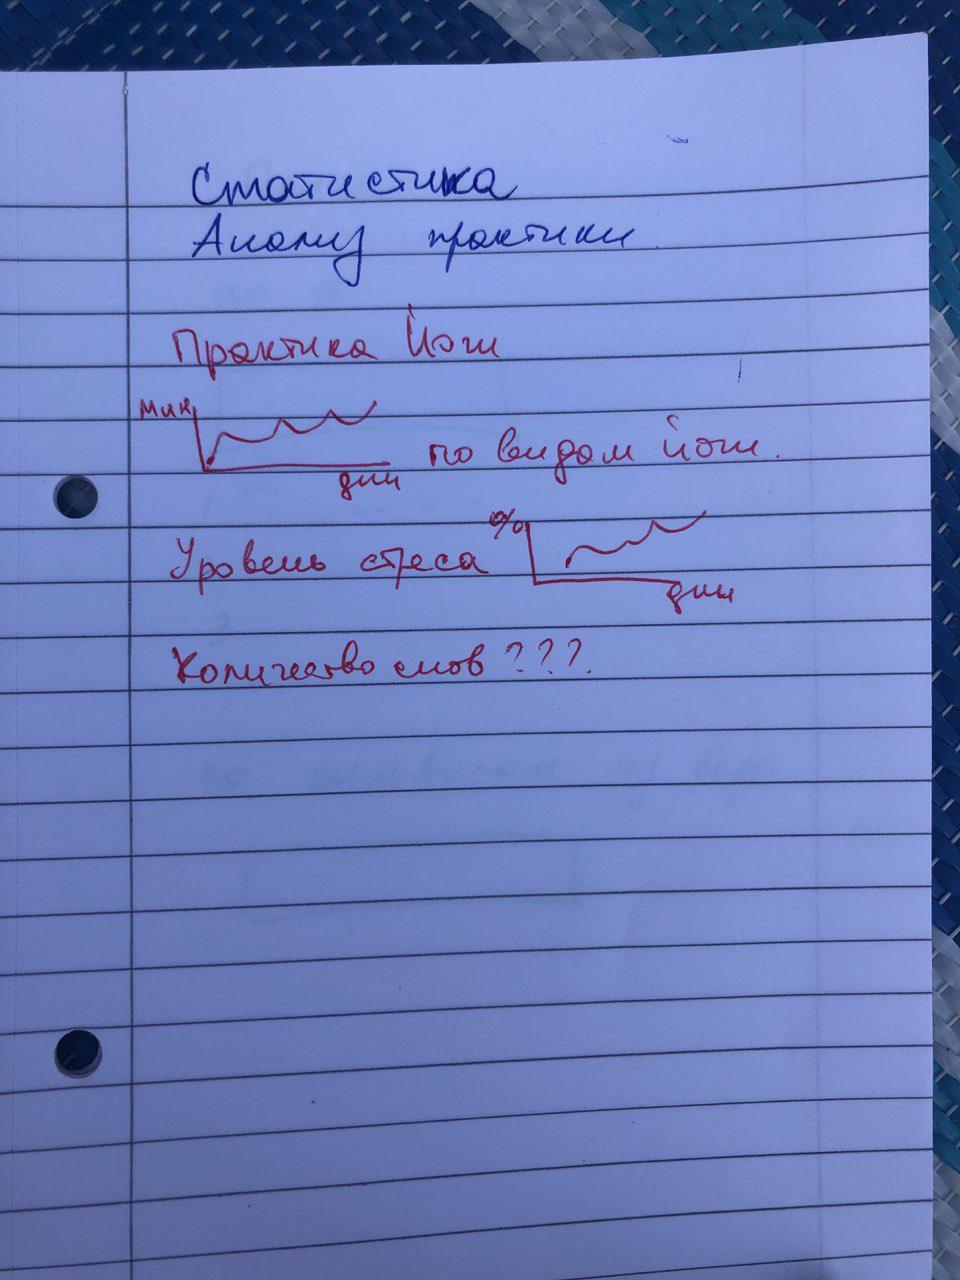 Статистика
Анализ практики.
Практика Йоги
мин
дни
по видам йоги.
Уровень стреса
%
дни
Количество слов ???.